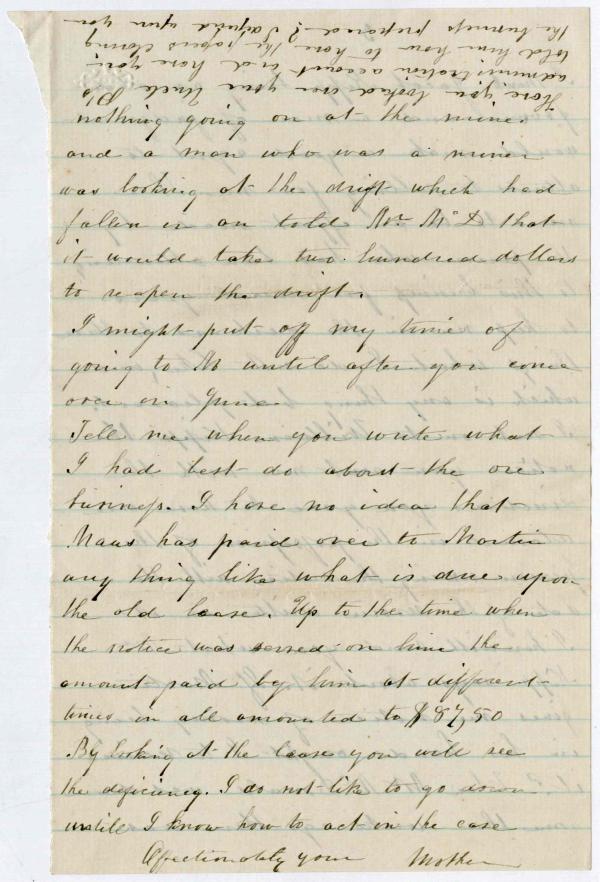 nothing going on at the mine.
and a man who was a miner
was looking at the drift which had
fallen in an told Mr. McD that
it would take two hundred dollars
to reopen the drift.
I might put off my time of
going to M until after you come
over in June.
Tell me when you write what
I had best do about the ore
business. I have no idea that
Maas has paid over to Martin
any thing like what is due upon
the old lease. Up to the time when
the notice was served on him the
amount paid by him at different
times in all amounted to $87,50
By looking at the lease you will see
the deficiency. I do not like to go down
untill I know how to act in the case
Affectionately your Mother
Have you looked over your Uncle
administration account and have you
told him how to have the papers
the business prepared? I upon you